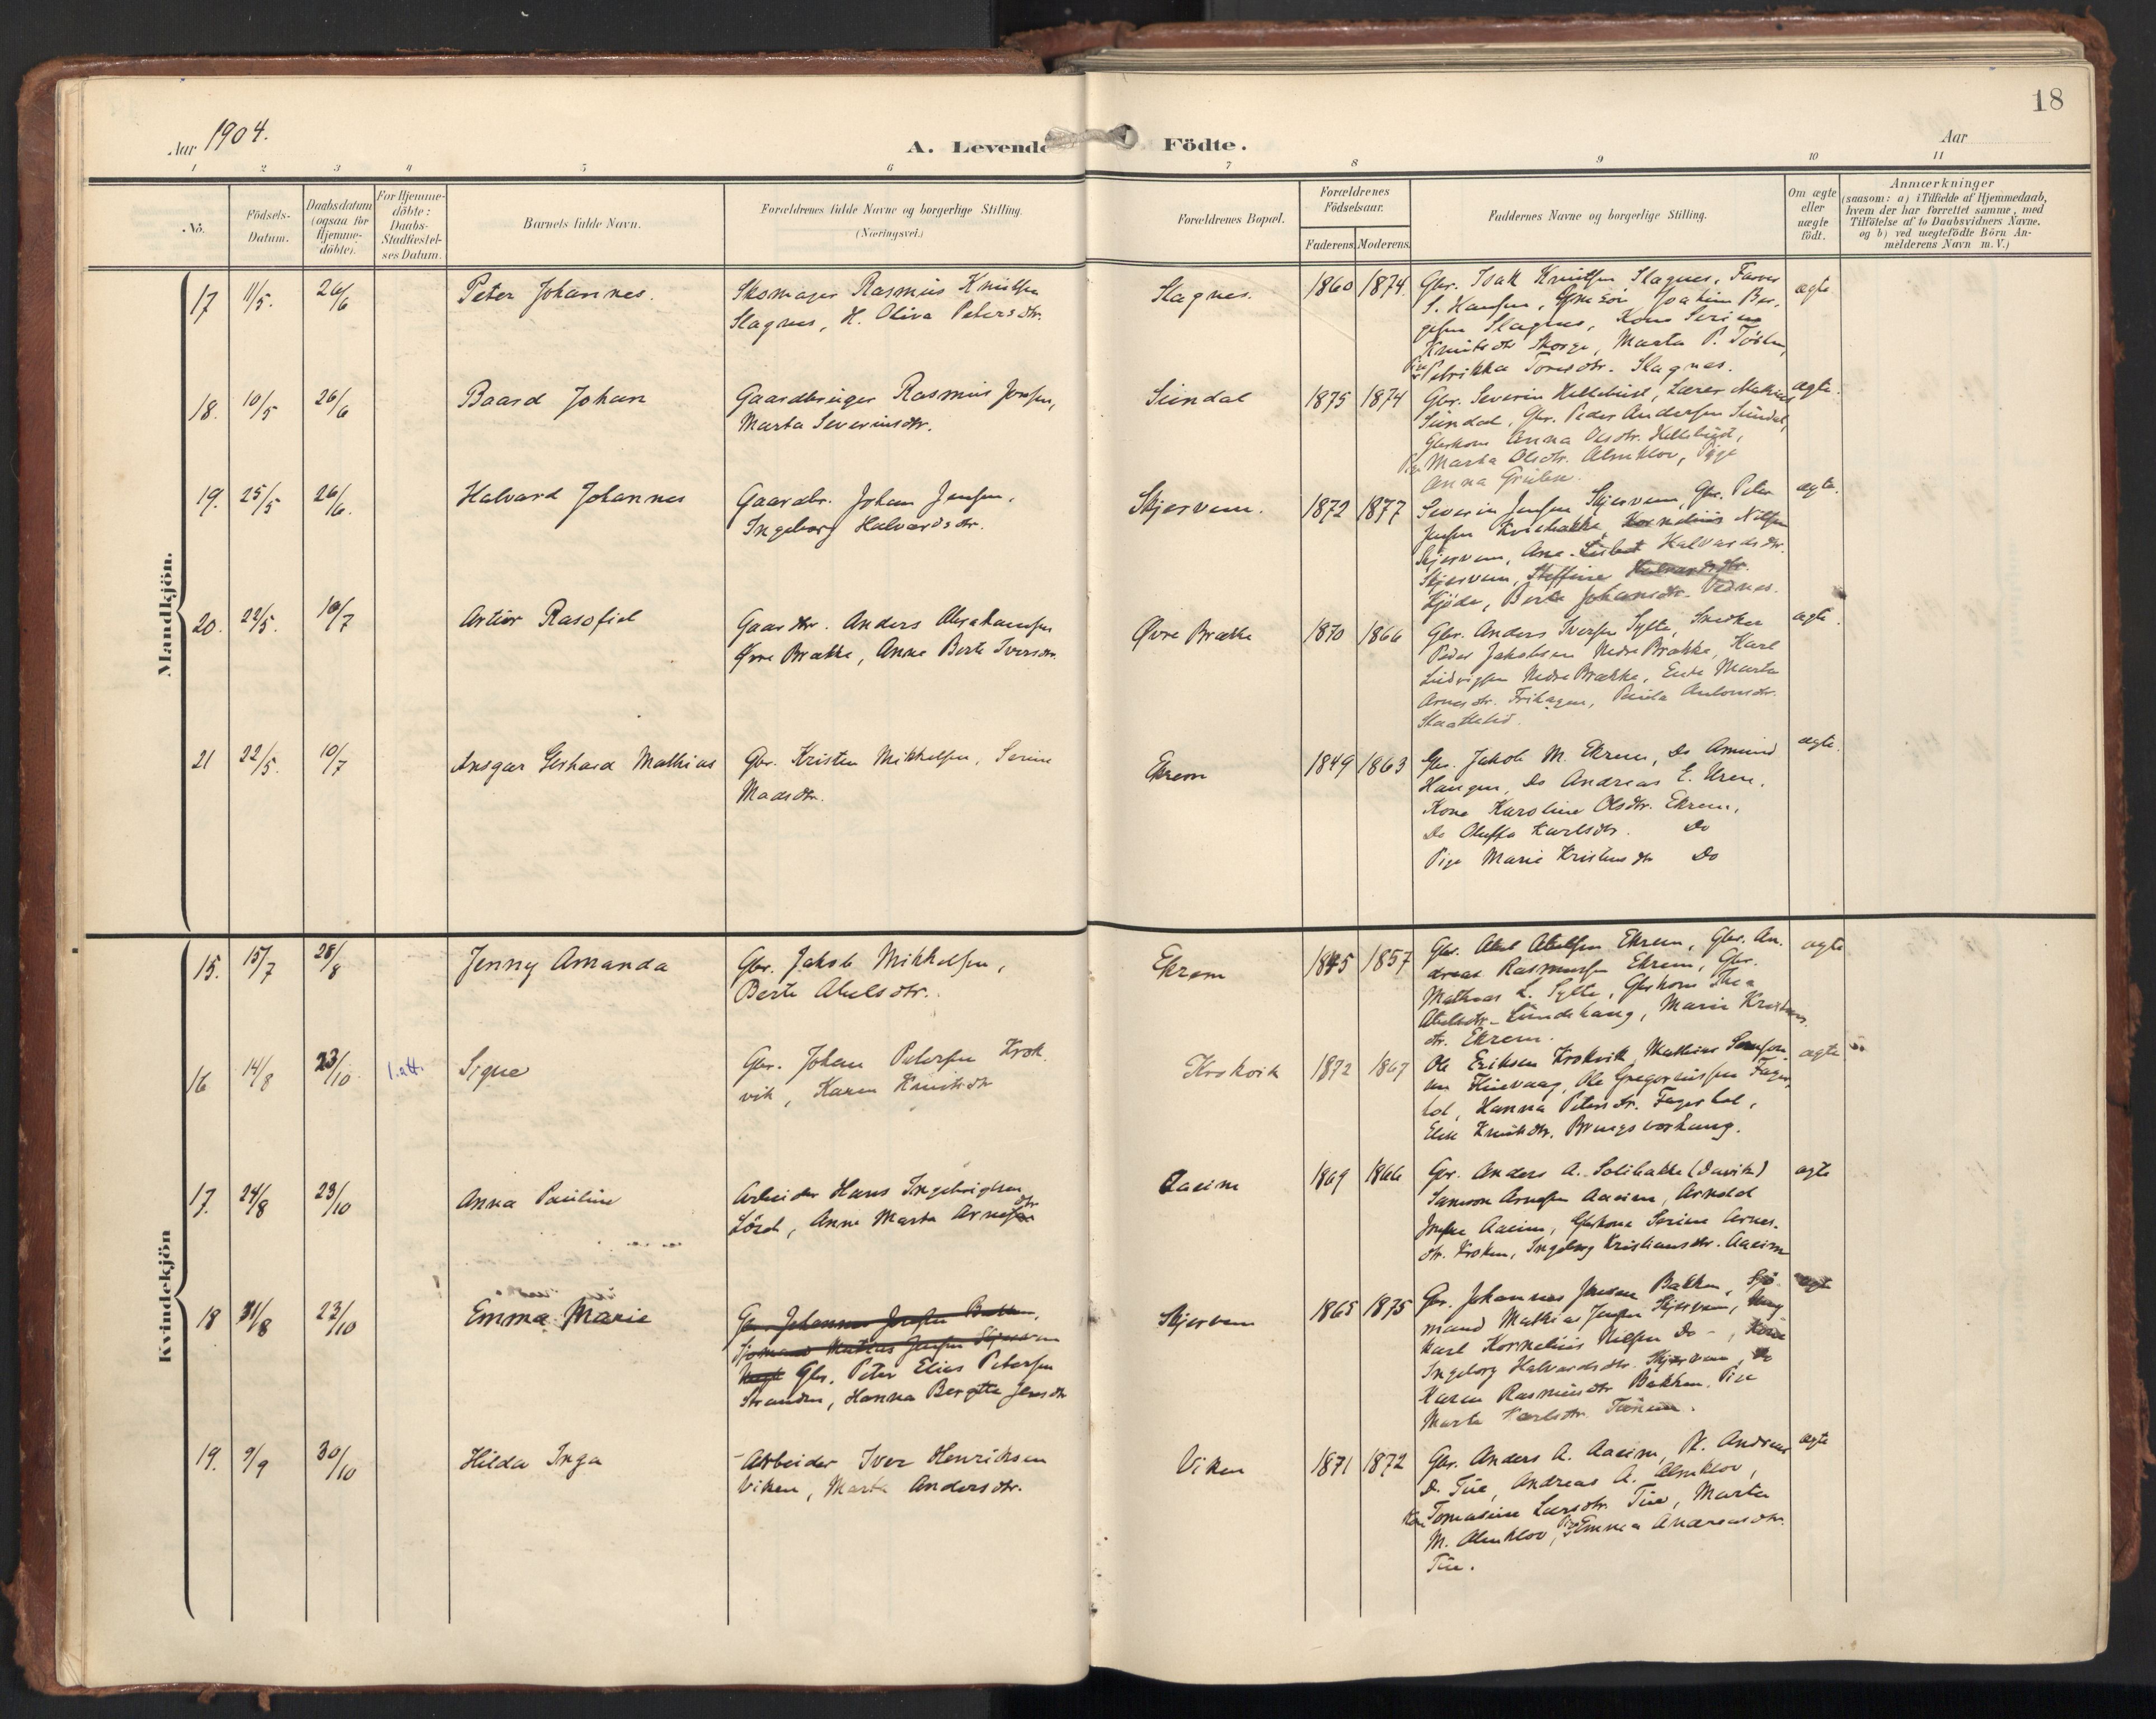 18
Aar 1904.
A. Levende Födte.
Aar
1 2 3 4 5 6 7 8 9 10 11
No.
Födsels-Datum.
Daabsdatum (ogsaa for Hjemme-döbte).
For Hjemme-döbte: Daabs-Stadfæstel-ses Datum.
Barnets fulde Navn.
Forældrenes fulde Navne og borgerlige Stilling.
(Næringsvei.)
Forældrenes Bopæl.
Forældrenes Födselsaar.
Faderens. Moderens.
Faddernes Navne og borgerlige Stilling.
Om ægte eller uægte födt.
Anmærkninger
(saasom: a) i Tilfælde af Hjemmedaab,
hvem der har forrettet samme, med
Tilföielse af to Daabsvidners Navne,
og b) ved uægtefödte Börn An-
melderens Navn m. V.)
Mandkjön.
17 11/5. 26/6 Peter Johannes. Skomager Rasmus Knutsen
Slagnes, H. Oliva Petersdtr.
Slagnes. 1860 1874 Gbr. Isak Knutsen Slagnes,
S. Hansen, Joakim Bør-
gesen Slagnes, Kone Serine
Knutsdtr Skorge, Marta P.
Petrikka Slagnes.
ægte
18. 10/5 26/6 Baard Johan Gaardbruger Rasmus Jonsen,
Marta Severinsdtr.
Sündal 1875 1874 Gbr. Severin Hellebust, Lærer Mathias
Sündal, Gbr. Peder Andersen Sündal,
Gbrkone Anna Olsdtr. Hellebust,
Pige Marta Olsdtr. Almklov, Pige
Anna
ægte.
19. 25/5 26/6. Halvard Johannes Gaardbr. Johan Jensen,
Ingeborg Halvardsdtr.
Skjervem. 1872 1877 Severin Jensen Skjervem, Gbr. Peter
Jensen Kornelius Nilsen
Skjervem, Ane Lisbet Halvardsdtr.
Skjervem, Steffine
Kjöde, Berte Johansdtr. Vednes.
ægte.
20. 22/5. 10/7 Artür Rasofiel Gaardbr. Anders Abrahamsen
Øvre Brække, Anne Berte Iversdtr.
Øvre Brække 1870 1866 Gbr. Anders Iversen Sylte, Snedker
Peder Jakobsen Nedre Brække, Karl
Ludvigsen Nedre Brække, Enke Marta
Arnesdtr. Frihagen, Paula Antonsdtr.
ægte.
21 22/5. 10/7 Ansgar Gerhard Mathias Gbr. Kristen Mikkelsen, Serine
Madsdtr.
Ekrem 1849 1863 Gbr. Jakob M. Ekrem, Do Amund
Haugen, Do Andreas E. Ekrem,
Kone Karoline Olsdtr. Ekrem,
Do Oluffa Karlsdtr. Do
Pige Marie Kristensdtr Do
ægte.
Kvindekjön
15. 15/7 28/8 Jenny Amanda Gbr. Jakob Mikkelsen,
Berte Abelsdtr.
Ekrem 1845 1857 Gbr. Abel Abelsen Ekrem, Gbr. An-
dreas Rasmussen Ekrem, Gbr.
Mathias L. Sylte, Gbrkone Thea
Abelsdtr. Lundehaug, Marie Kristens-
dtr. Ekrem.
ægte
16 14/8 23/10 1.att. Signe Gbr. Johan Petersen Krok-
vik, Karen Knutsdtr
Krokvik 1872 1867 Ole Eriksen Krokvik, Mathias
Ole Gregoriussen Fager-
lol, Hanna Petersdtr. Fagerhol,
Elise Knutsdtr.
ægte
17. 24/8 23/10 Anna Pauline Arbeider Hans Ingebrigtsen
Anne Marta Arnesdtr
Aaeim 1869 1866 Gbr. Anders A. Solibakke (Davik)
Samson Arnesen Aaeim, Arnold
Aaeim, Gbrkone Serine Arnes-
dtr. Kroken, Ingeborg Kristiansdtr. Aaeim
ægte
18 31/8 23/10 Emma Marie Gbr. Johannes Jensen Bakken,
Sjømand Mathias Jensen Skjervem
Gbr. Peter Elias Petersen
Stranden, Hanna Bergitte Jensdtr
Skjervem 1865 1875 Gbr. Johannes Jensen Bakken, Sjø-
mand Mathias Jensen Skjervem, Ung-
karl Kornelius Nilsen Do, Kone
Ingeborg Halvardsdtr. Skjervem, Do
Karen Rasmusdtr Bakken, Pige
Marta Karlsdtr.
ægte
19. 9/9 30/10 Hilda Inga Arbeider Iver Henriksen
Viken, Marta Andersdtr.
Viken 1871 1872 Gbr. Anders A. Aaeim, Andreas
D. Tüe, Andreas A. Almklov,
Kone Tomasine Larsdtr. Tüe, Marta
M. Almklov, Pige Emma Andreasdtr.
Tüe.
ægte